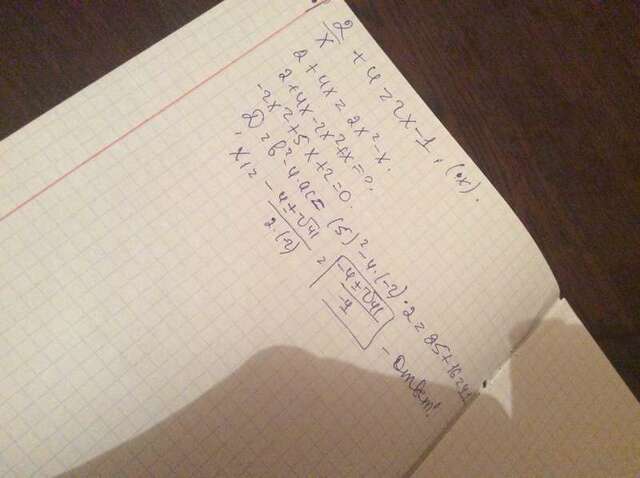 2/x + 4 = 2x - 1, (·x).
2 + 4x = 2x² - x.
2 + 4x - 2x² + x = 0.
-2x² + 5x + 2 = 0.
D = b² - 4·ac = (5)² - 4·(-2)·2 = 25 + 16 = 41
x₁,₂ = (-4 ± √41)/(2·(-2)) = (-4 ± √41)/(-4) - Ответ!